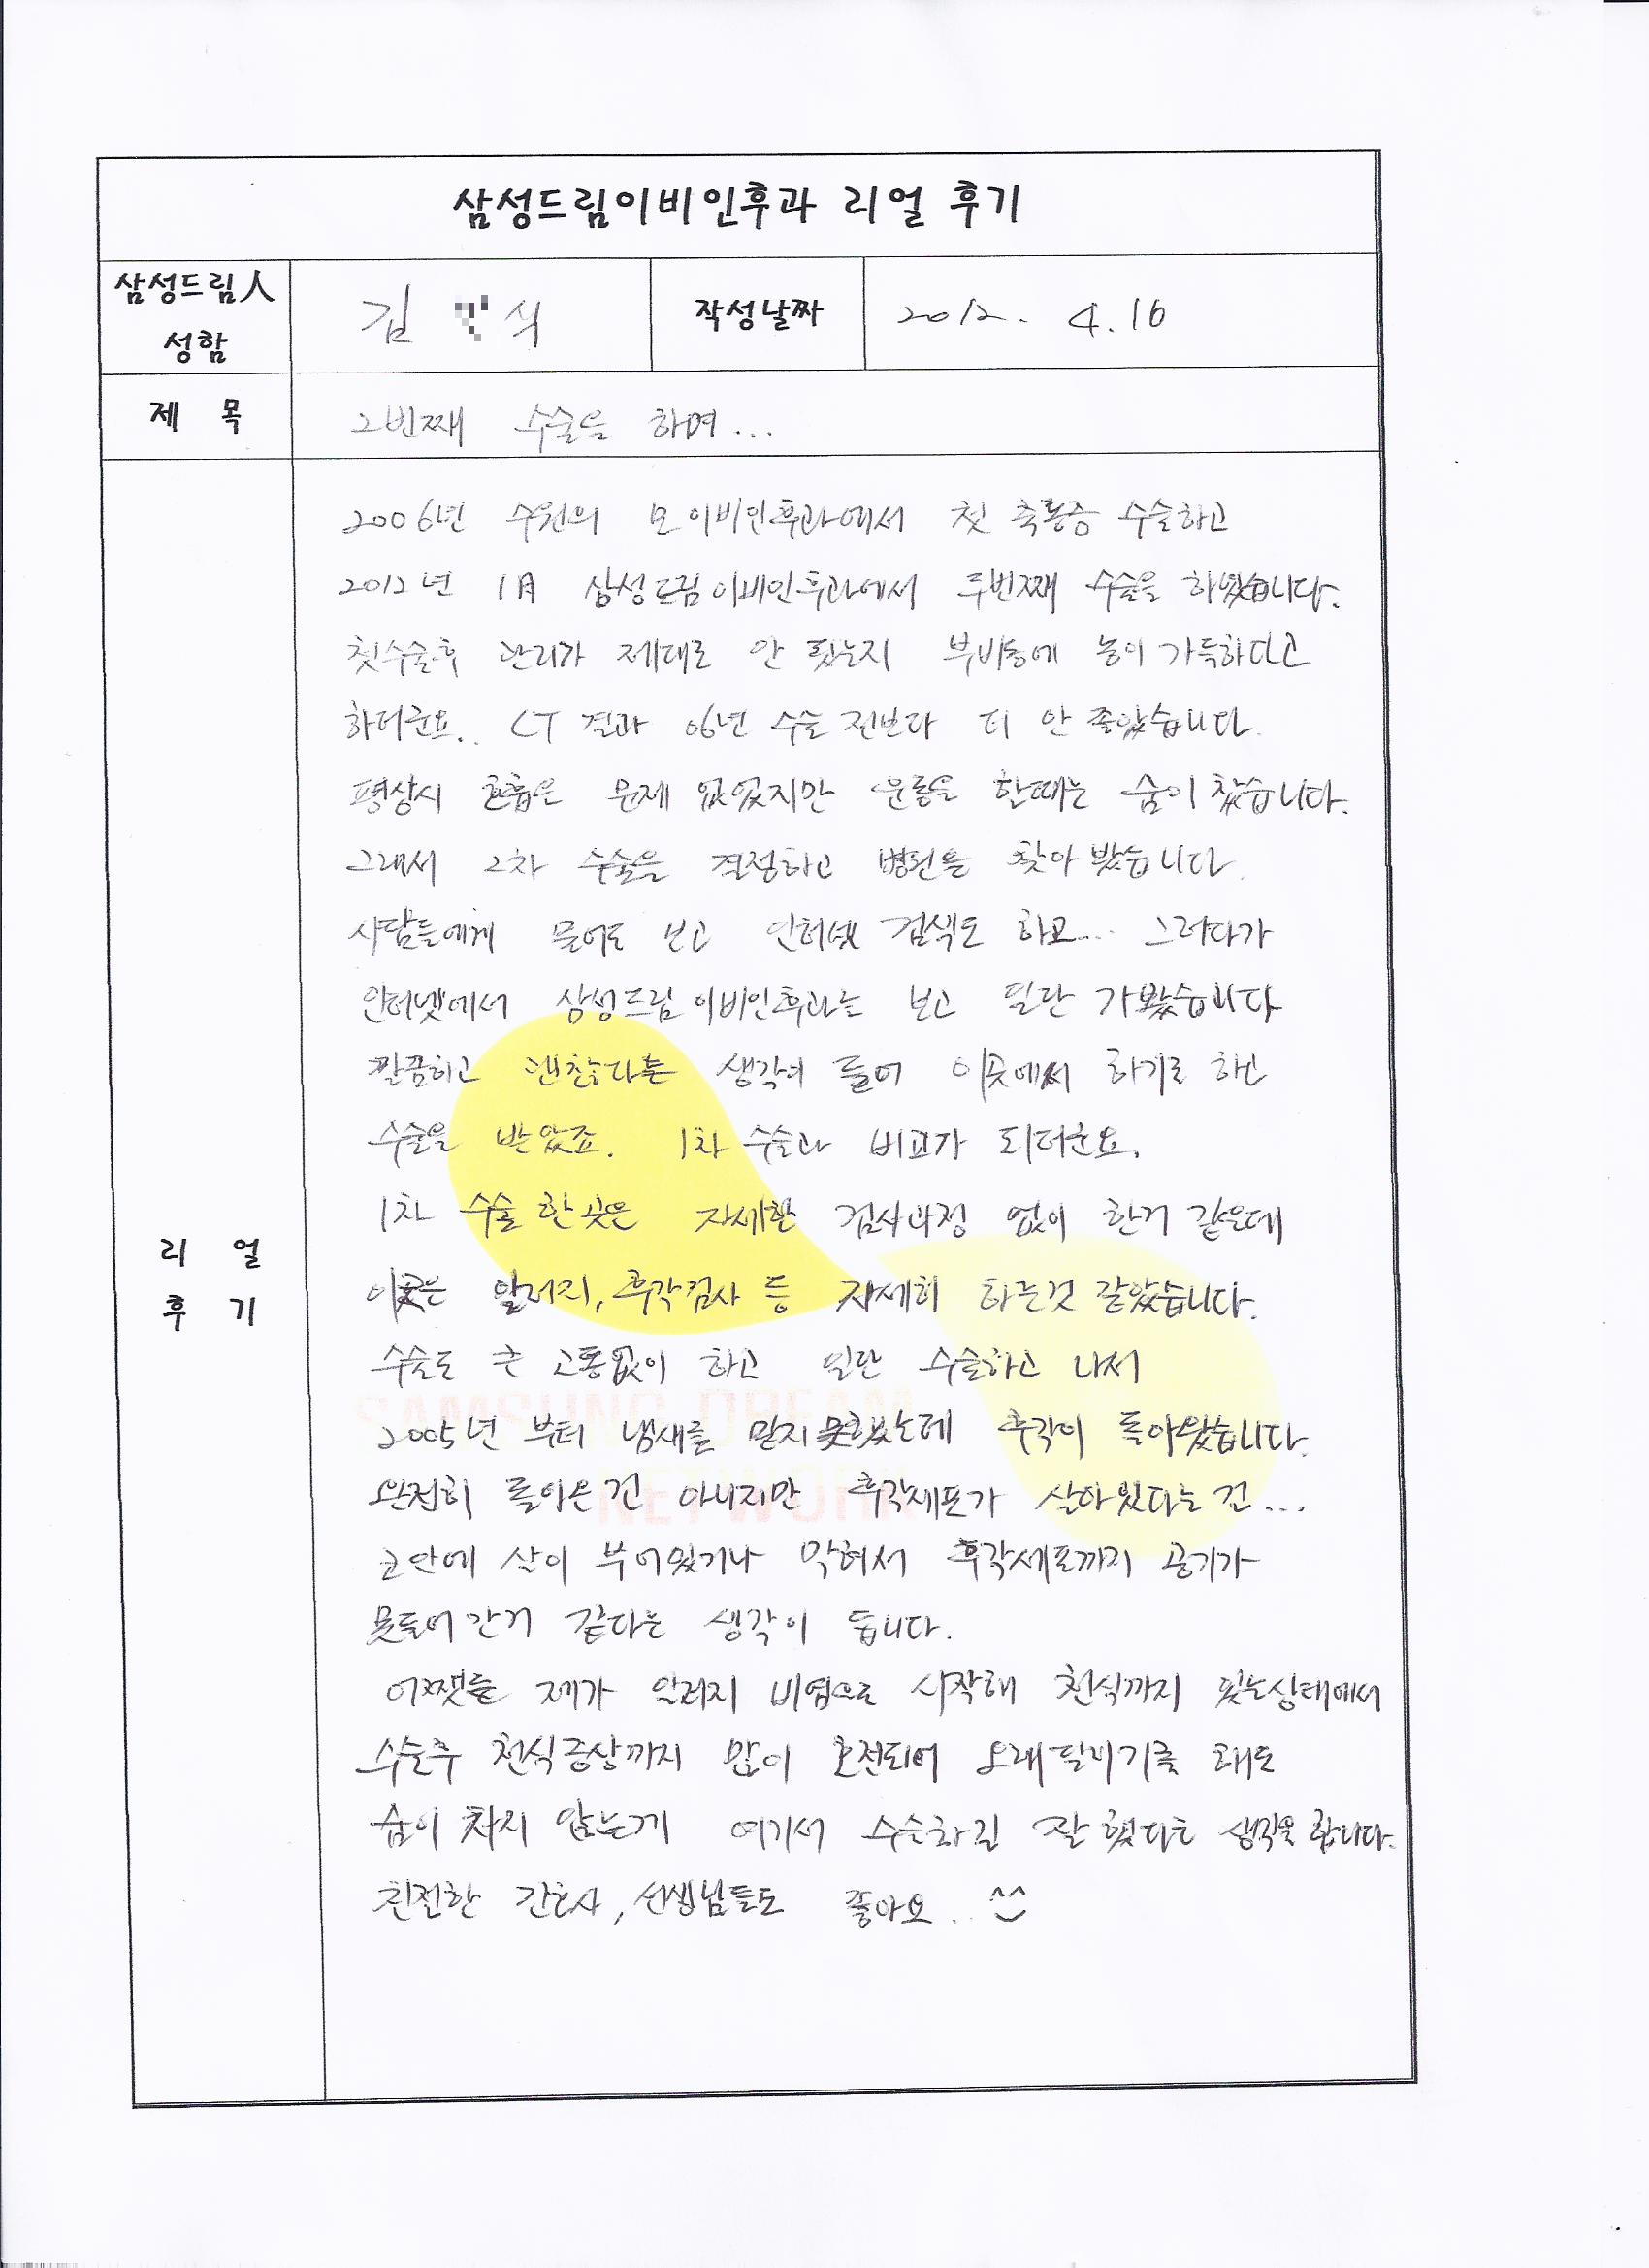 삼성드림이비인후과 리얼 후기
삼성드림人 성함
김 식
작성날짜
2012. 4. 16
제 목
2번째 수술을 하며...
리 얼 후 기
2006년 수원의 모 이비인후과에서 첫 축농증 수술하고
2012년 1月 삼성드림이비인후과에서 두번째 수술을 하였습니다.
첫수술후 관리가 제대로 안 됐는지 부비동에 농이 가득하다고
하더군요.. CT 결과 06년 수술 전보다 더 안 좋았습니다.
평상시 호흡은 문제 없었지만 운동을 할때는 숨이 찼습니다.
그래서 2차 수술을 결정하고 병원을 찾아 봤습니다.
사람들에게 물어도 보고 인터넷 검색도 하고... 그러다가
인터넷에서 삼성드림이비인후과를 보고 일단 가봤습니다
깔끔하고 괜찮다는 생각이 들어 이곳에서 하기로 하고
수술을 받았죠. 1차 수술과 비교가 되더군요.
1차 수술 한곳은 자세한 검사과정 없이 한거 같은데
이곳은 알러지, 후각검사 등 자세히 하는것 같았습니다.
수술도 큰 고통없이 하고 일단 수술하고 나서
2005년 부터 냄새를 맡지 못했는데 후각이 돌아왔습니다.
완전히 돌아온건 아니지만 후각세포가 살아있다는건...
코안에 살이 부어있거나 막혀서 후각세포까지 공기가
못들어간거 같다는 생각이 듭니다.
어쨌든 제가 알러지 비염으로 시작해 천식까지 있는상태에서
수술후 천식증상까지 많이 호전되어 오래달리기를 해도
숨이 차지 않는게 여기서 수술하길 잘 했다는 생각을 합니다.
친절한 간호사, 선생님들도 좋아요.. ^^
SAMSUNG DREAM
NETWORK